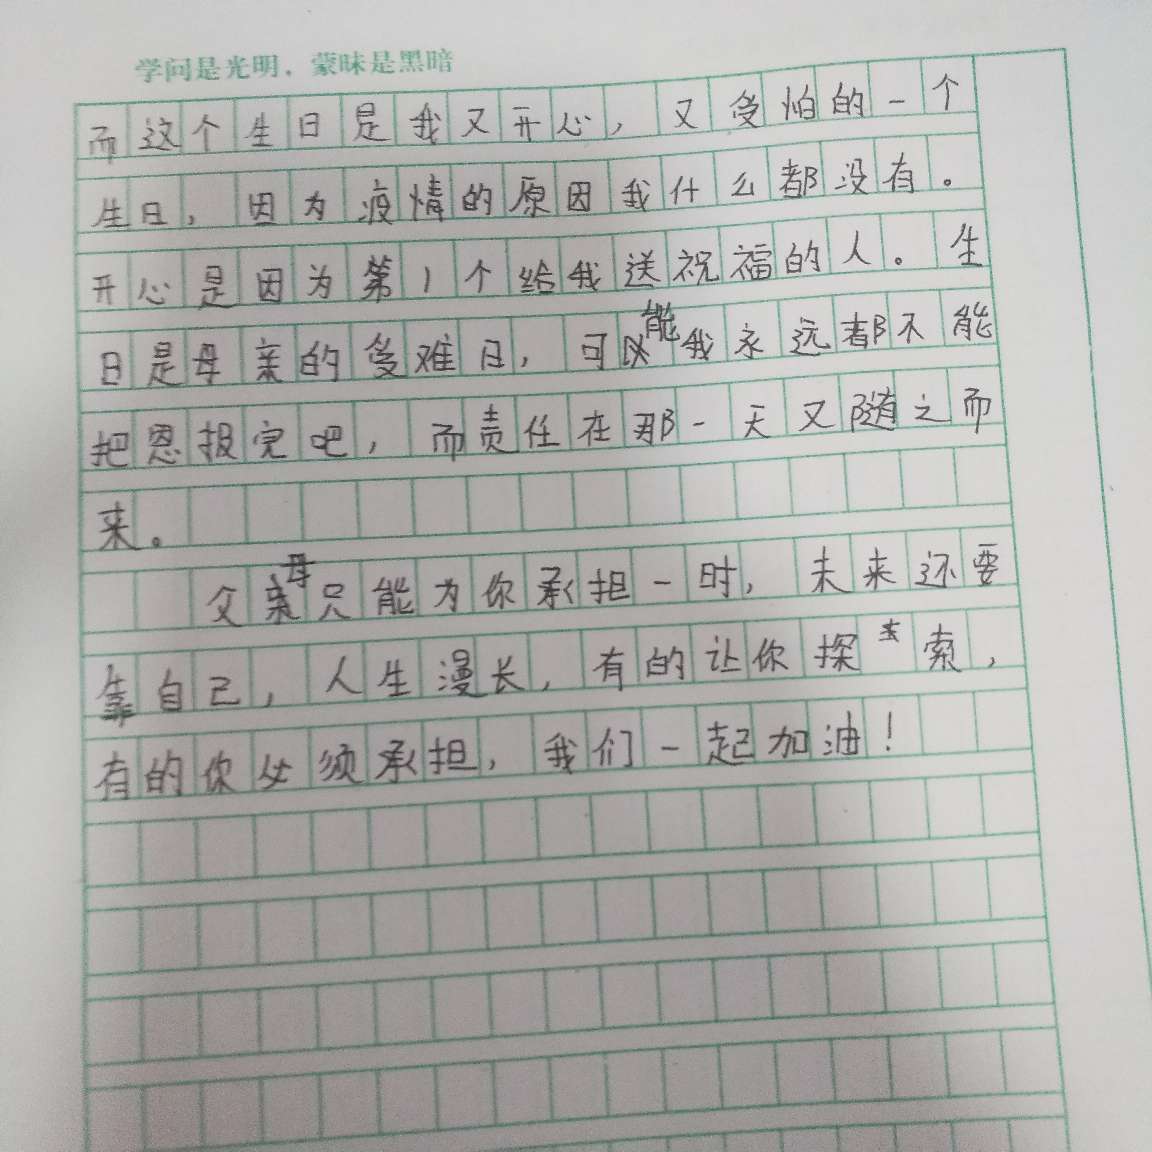 学问是光明，蒙昧是黑暗
而这个生日是我又开心，又受怕的一个
生日，因为疫情的原因我什么都没有。
开心是因为第1个给我送祝福的人。生
日是母亲的受难日，可能我永远都不能
把恩报完吧，而责任在那一天又随之而
来。
父母只能为你承担一时，未来还要
靠自己，人生漫长，有的让你探去索，
有的你必须承担，我们一起加油！